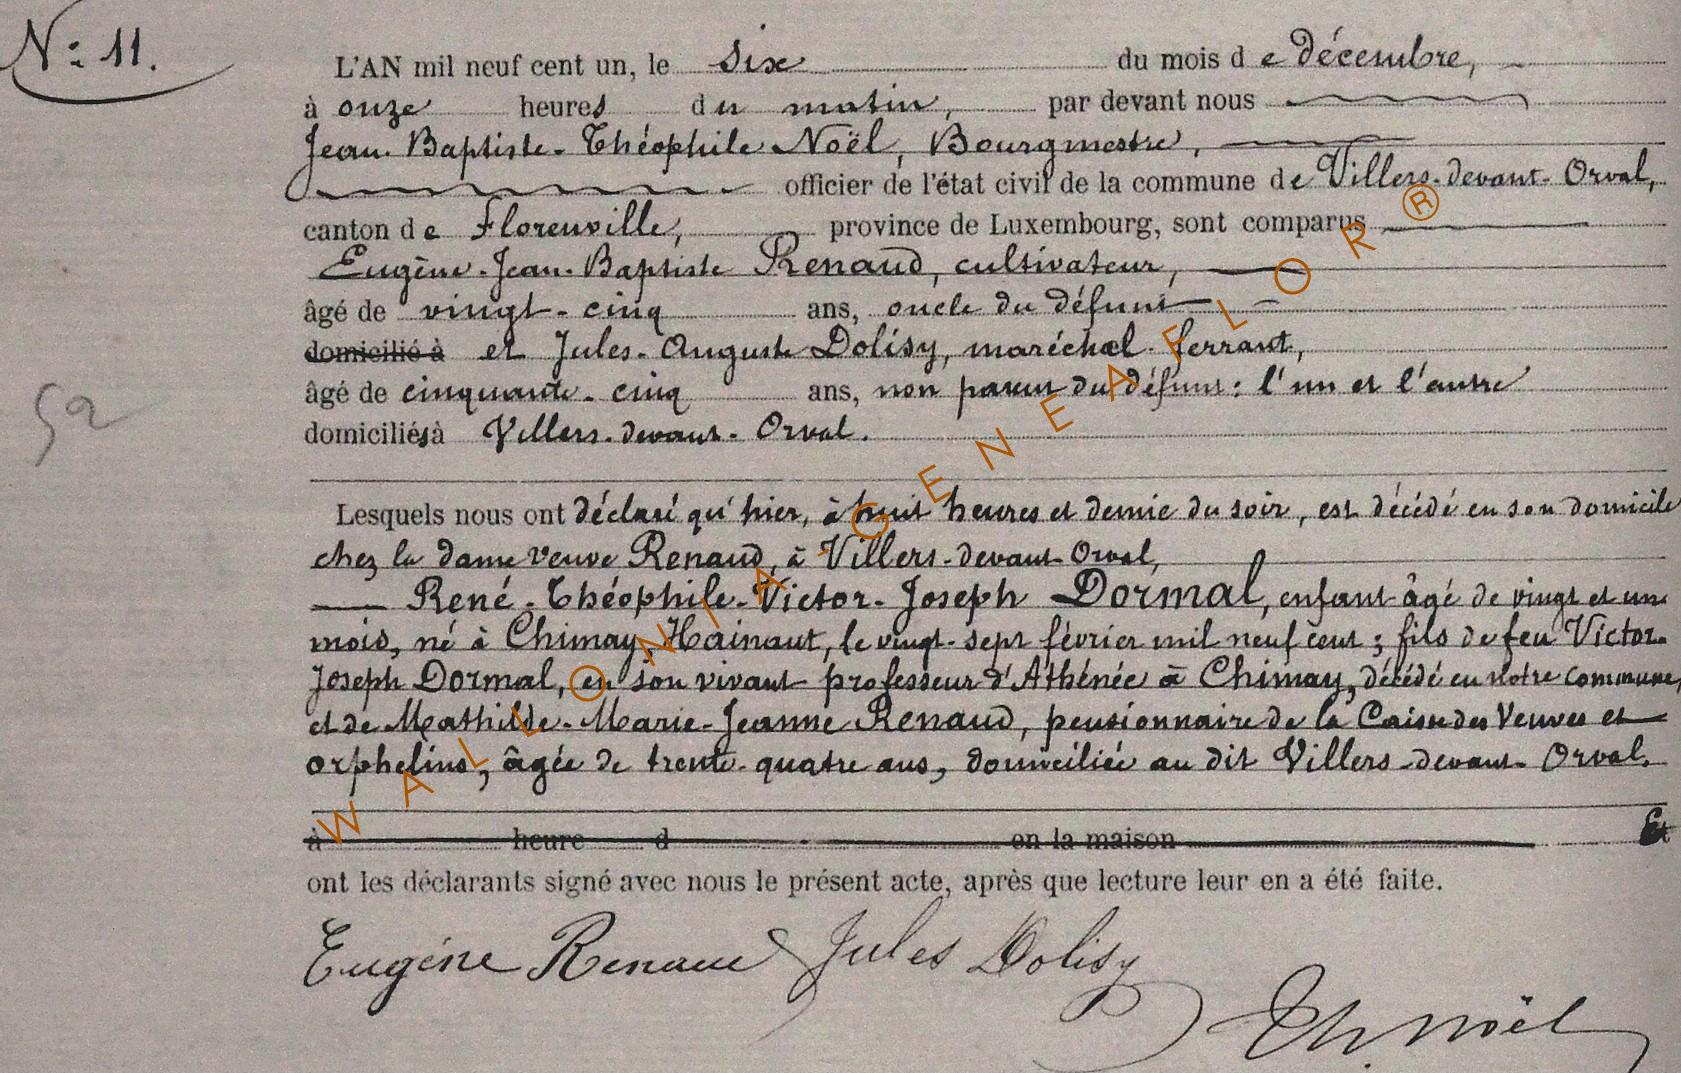 N: 11.
L'AN mil neuf cent un, le six du mois de décembre,
à onze heures du matin, par devant nous
Jean-Baptiste-Théophile Noël, Bourgmestre,
officier de l'état civil de la commune de Villers-devant-Orval,
canton de Florenville, province de Luxembourg, sont comparus
Eugène-Jean-Baptiste Renaud, cultivateur,
âgé de vingt-cinq ans, oncle du défunt
domicilié à et Jules-Auguste Dolisy, maréchal-ferrant,
âgé de cinquante-cinq ans, non parent du défunt: l'un et l'autre
domiciliés à Villers-devant-Orval.
52
Lesquels nous ont déclaré qu'hier, à huit heures et demie du soir, est décédé en son domicile
chez la dame veuve Renaud, à Villers-devant-Orval,
René-Théophile-Victor-Joseph Dormal, enfant âgé de vingt et un
mois, né à Chimay, Hainaut, le vingt-sept février mil neuf cent; fils de feu Victor-
Joseph Dormal, en son vivant professeur d'Athénée à Chimay, décédé en notre commune,
et de Mathilde-Marie-Jeanne Renaud, pensionnaire de la Caisse des Veuves et
orphelins, âgée de trente-quatre ans, domiciliée au dit Villers-devant-Orval.
à heure d en la maison Et
ont les déclarants signé avec nous le présent acte, après que lecture leur en a été faite.
Eugène Renaud Jules Dolisy
Th. Noël
WALLONIA - GENEAFLOR ®